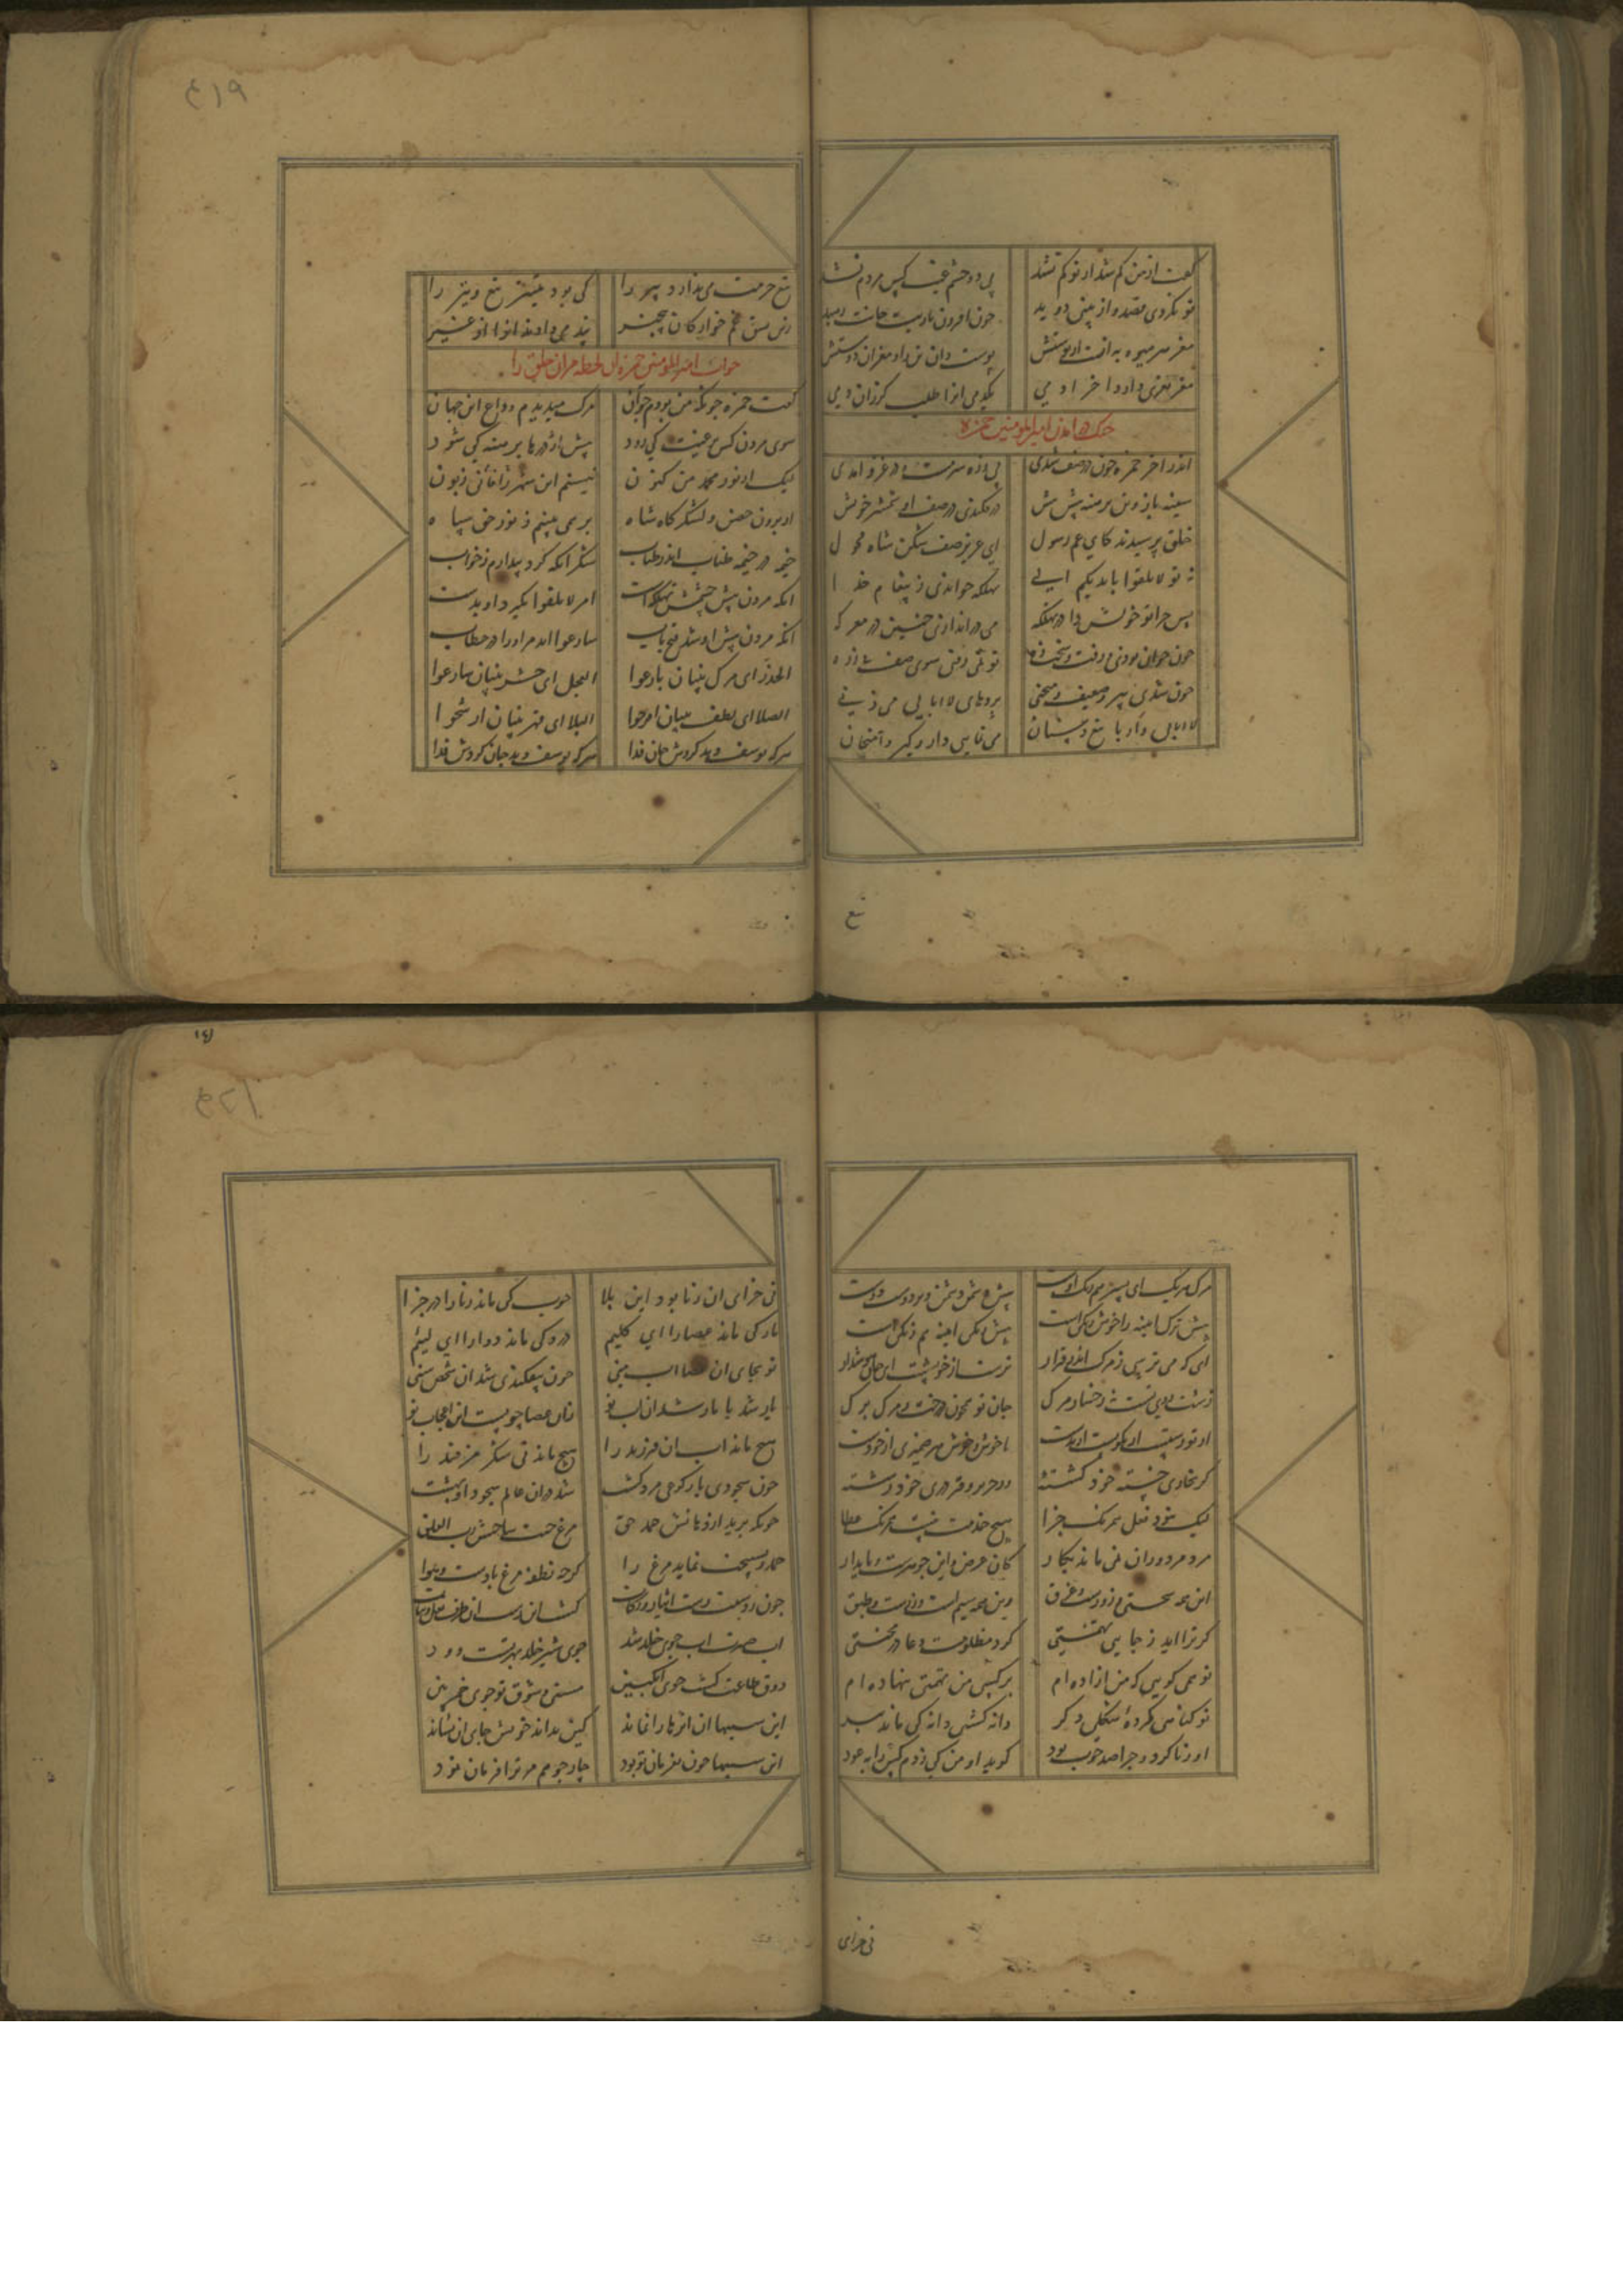 گفت از من کم شد از تو کم نشد بی دو چشم غیب کس مردم نشد
تو نکردی قصد و از بینی دوید چون افزون نارییت جانت رسید
مغز هر میوه به است از پوستش پوست دان تن را و مغز آن دوستش
مغز نغزی دارد آخر آدمی یکدمی آنرا طلب گر زان دمی
جنک امدن امیرالمومنین حمزه
اندر آخر حمزه چون در صف شدی بی زره سرمست در غزو امدی
سینه باز و تن برهنه پیش پیش در فکندی در صف شمشیر خویش
خلق پرسیدند کای عم رسول ای عزیز صف شکن شاه فحول
نه تو لا تلقوا بایدیکم الی تهلکه خواندی ز پیغام خدا
پس چرا تو خویش را در تهلکه می دراندازی چنین در معرکه
چون جوان بودی و زفت و سخت زه تو نمی رفتی سوی صف بی زره
چون شدی پیر و ضعیف و منحنی پردهای لاابالی می زنی
لاابالی وار با تیغ و سنان می نمایی دار و گیر و امتحان
تیغ
تیغ حرمت می ندارد پیر را کی بود تمییز تیغ و تیر را
زین نسق غم خوارکان بیخبر پند می دادند او را از غیر
جواب امیرالمومنین حمزه مران خلق را
گفت حمزه چونکه من بودم جوان مرک میدیدم وداع این جهان
سوی مردن کس برغبت کی رود پیش اژدرها برهنه کی شود
لیک از نور محمد من کنون نیستم این شهر فانی را زبون
از برون حس و لشکرکاه شاه بر همی بینم ز نور حق سپاه
خیمه در خیمه طناب اندر طناب شکر آنکه کرد بیدارم ز خواب
انکه مردن پیش چشمش تهلکه است امر لا تلقوا بکیرد او بدست
انکه مردن پیش او شد فتح باب سارعوا امد مر او را در خطاب
الحذر ای مرک بینان بارعوا العجل ای حشر بینان سارعوا
الصلا ای لطف بینان افرحوا البلا ای قهر بینان اترحوا
هرکه یوسف دید کردش جان فدا هرکه یوسف دید جان کردش فدا
۴۱۹
مرک هر یک ای پسر همرنک اوست پیش دشمن دشمن و بر دوست دوست
پیش ترک آینه را خوش رنکی است پیش زنکی آینه هم زنکی است
ای که می ترسی ز مرک اندر فرار آن ز خود ترسانی ای جان هوش دار
زشت روی تست نه رخسار مرک جان تو همچون درخت و مرک برک
از تو رستست ار نکویست ار بدست ناخوش و خوش هر ضمیری از خودست
گر بخاری خسته خود کشتهٔ ور حریر و قز دری خود رشتهٔ
لیک نبود فعل همرنک جزا هیچ خدمت نیست همرنک عطا
مزد مزدوران نمی ماند بکار کان عرض واین جوهرست و پایدار
این همه سختی و زورست و عرق وین همه سیمست و زرست و طبق
کر ترا اید ز جایی تهمتی کرد مظلومت دعا در محنتی
تو همی گویی که من آزاده ام بر کسی من تهمتی ننهاده ام
تو کناهی کردهٔ شکلی دکر دانه کشتی دانه کی ماند ببر
او زنا کرد و جزا صد چوب بود کوید او من کی زدم کس را به عود
نی جزای
نی جزای آن زنا بود این بلا چوب کی ماند زنا را در جزا
مار کی ماند عصا را ای کلیم درد کی ماند دوا را ای لئیم
تو بجای آن عصا آب منی چون بیفکندی شد آن شخص سنی
یار شد یا مار شد آن آب تو زان عصا چونست این اعجاب تو
هیچ ماند آب آن فرزند را هیچ ماند نی شکر مر قند را
چون سجودی یا رکوعی مرد کشت شد در آن عالم سجود او بهشت
چونکه پرید از دهانش حمد حق مرغ جنت ساختش رب الفلق
حمد و تسبیحت نماند مرغ را کرچه نطفه مرغ بادست و هوا
چون ز دستت رست ایثار و زکات کشت آن دست آن طرف نخل و نبات
آب صبرت آب جوی خلد شد جوی شیر خلد مهر تست و ود
ذوق طاعت کشت جوی انکبین مستی و شوق تو جوی خمر بین
این سببها آن اثرها را نماند کس نداند چونش جای آن نشاند
این سببها چون بفرمان تو بود چار جو هم مر ترا فرمان نمود
۴۲۰